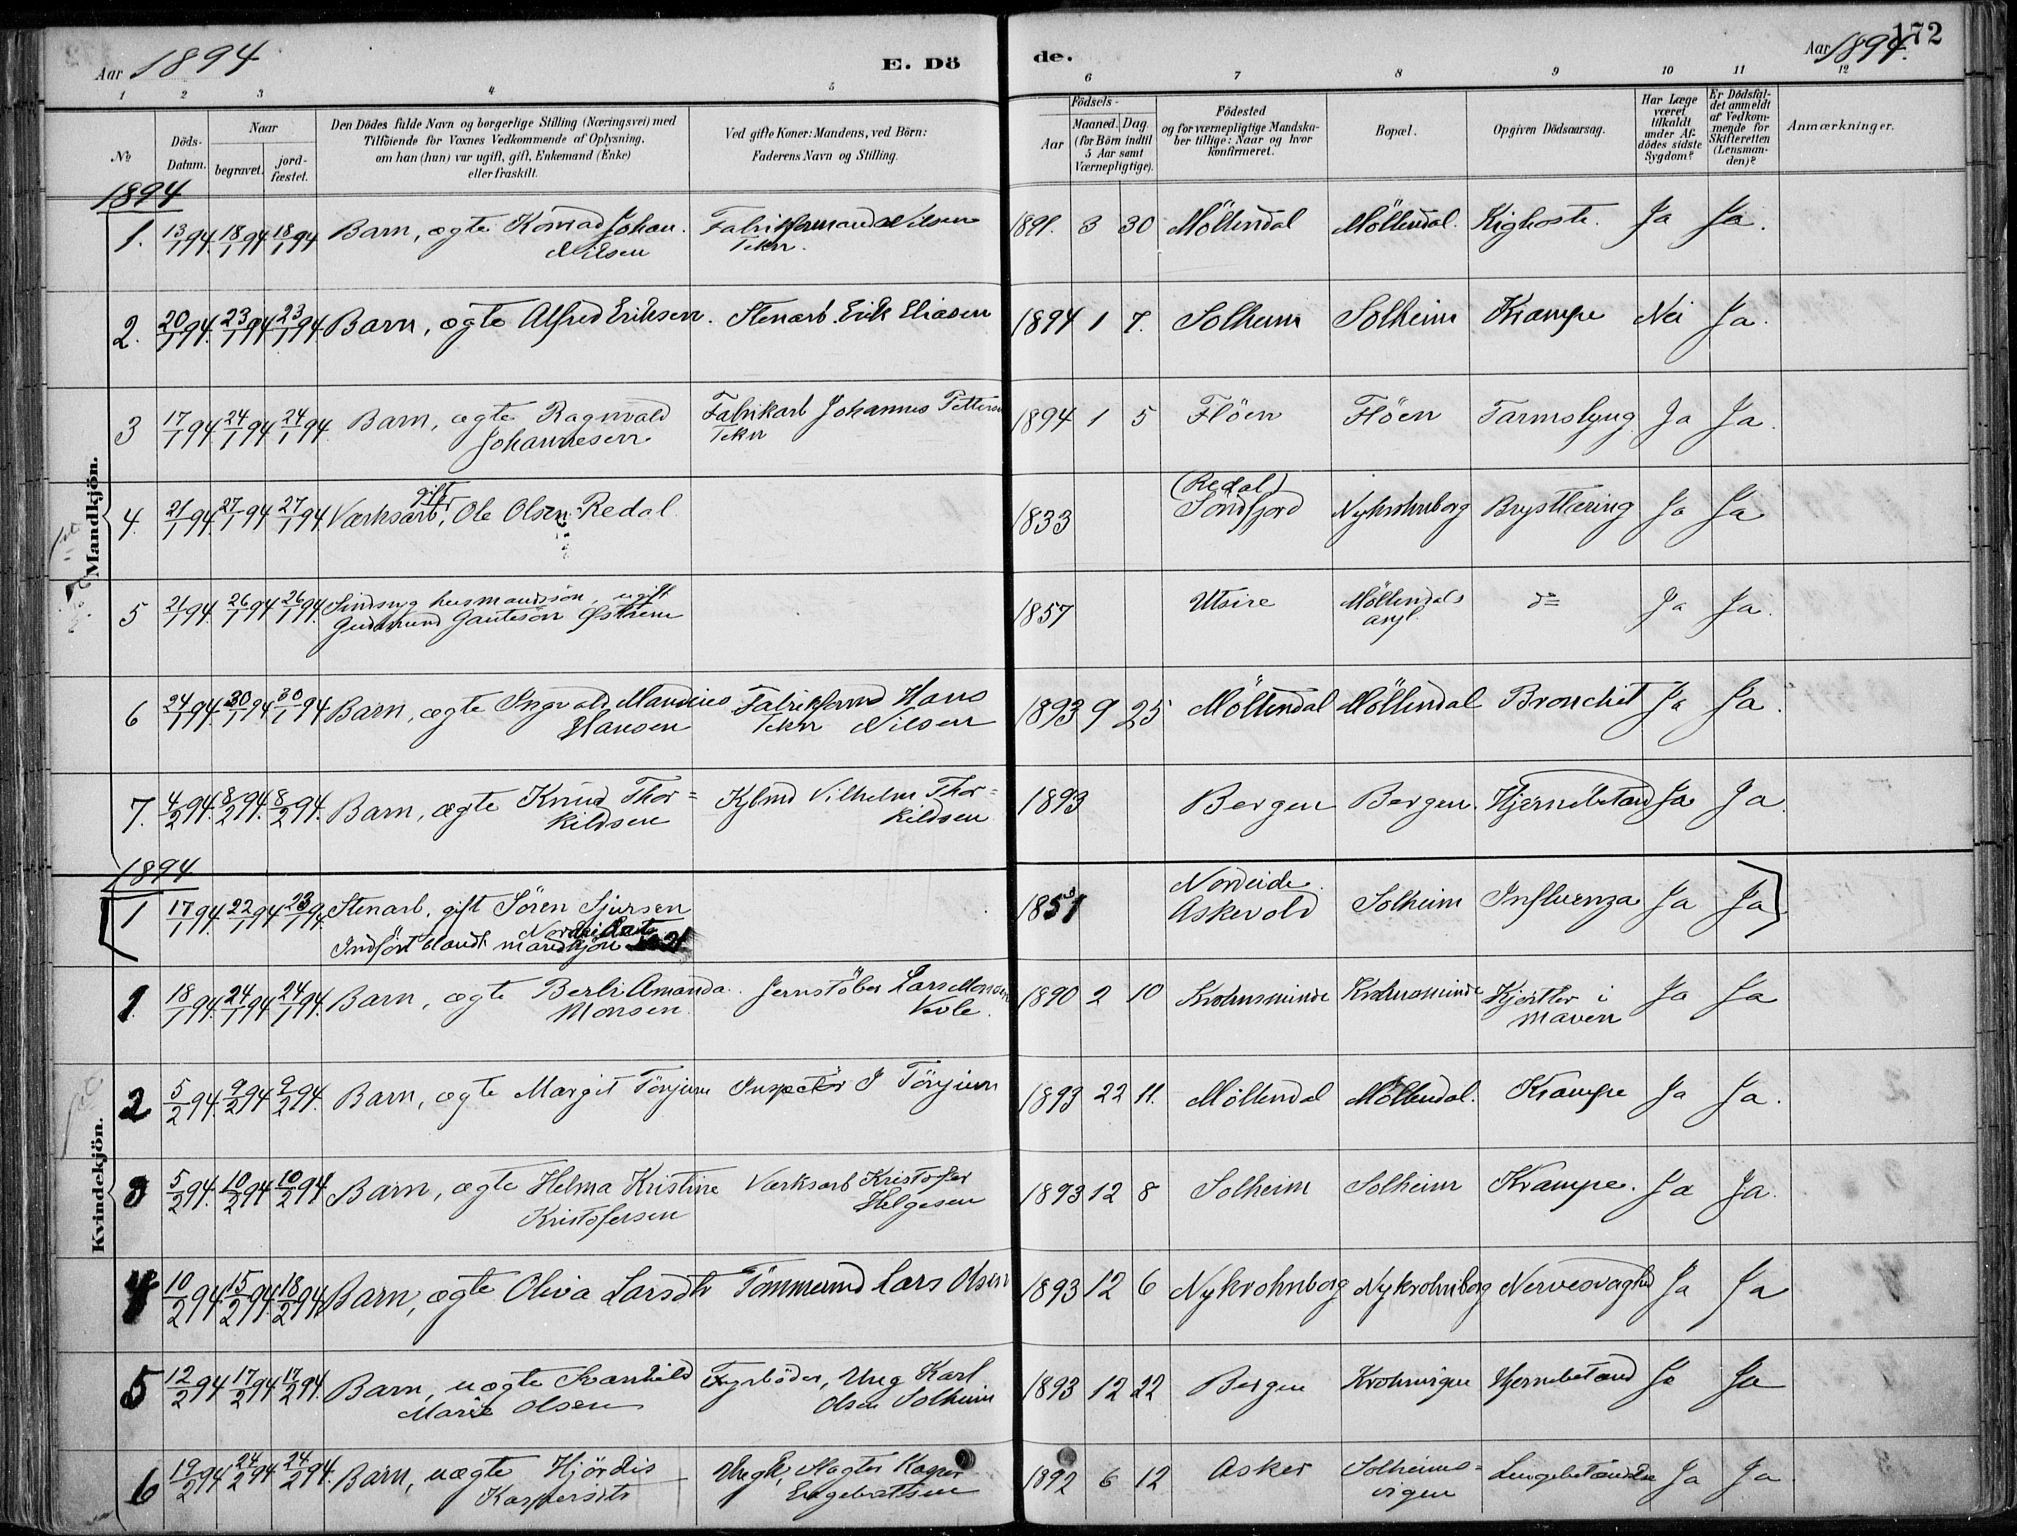 Aar 1894 E. Dö de. Aar 1894. 172
1 2 3 4 5 6 7 8 9 10 11 12
№ Döds-Datum. Naar begravet. jord-fæstet. Den Dödes fulde Navn og borgerlige Stilling (Næringsvei) med Tilföiende for Voxnes Vedkommende af Oplysning, om han (hun) var ugift, gift, Enkemand (Enke) eller fraskilt. Ved gifte Koner: Mandens, ved Börn: Faderens Navn og Stilling. Födsels- Aar Maaned. Dag (for Börn indtil 5 Aar samt Værnepligtige). Födested og for værnepligtige Mandskaber tillige: Naar og hvor konfirmeret. Bopæl. Opgiven Dödsaarsag. Har Læge været tilkaldt under Afdödes sidste Sygdom? Er Dödsfaldet anmeldt af Vedkommende for Skifteretten (Lensmanden)? Anmærkninger.
Mandkjön.
1894
1. 13/1 94. 18/1 94 18/1 94 Barn, ægte Konrad Johan. Fabrikformand Nilsen 1891. 3 30 Möllendal Möllendal. Kighoste. Ja Ja.
Nilsen Tekn.
2. 20/1 94. 23/1 94 23/1 94 Barn, ægte Alfred Eriksen. Stenarb. Erik Eliasen 1894 1 7. Solheim Solheim Krampe Nei Ja.
3 17/1 94 24/1 94 24/1 94. Barn, ægte Ragnvald Fabrikarb Johannes Petters 1894 1 5 Flöen Flöen Tarmslyng Ja Ja.
Johannesen Tekn
gift (Redal)
4. 21/1 94 27/1 94 27/1 94 Værksarb, Ole Olsen Redal. 1833 Söndfjord Nykrohnborg Brystlæring Ja Ja
5 21/1 94. 26/1 94 26/1 94. Sindssyg husmandssön, ugift 1857 Utsire Möllendals do Ja Ja.
Gudmund Gautesön Østrem asyl.
6 24/1 94. 30/1 94 30/1 94 Barn, ægte Ingvald Mandius Fabrikformd Hans 1893 9 25 Möllendal Möllendal Bronchit Ja Ja.
Hansen Tekn Nilsen
7. 4/2 94. 8/2 94. 8/2 94. Barn, ægte Knud Thor= Kjbmd Vilhelm Thor= 1893 Bergen Bergen. Hjernebetænd Ja Ja.
kildsen kildsen
1894
1 17/1 94 22/1 94 23/1 94. Stenarb. gift Sören Sjursen 1851 Nordeide. Askevold Solheim Influenza Ja Ja
Indfört blandt mandkjön 21
Kvindekjön.
1. 18/1 94 24/1 94 24/1 94. Barn, ægte Berli Amanda. Jernstöber Lars Monsen 1890 2 10 Krohnsminde Krohnsminde Kjertler i Ja Ja
Monsen. Kvle. maven
2 5/2 94. 9/2 94 9/2 94. Barn, ægte Margit Tönjum Inspectör J Tönjum 1893 22 11. Möllendal Möllendal. Krampe Ja Ja.
3 5/2 94. 10/2 94 10/2 94 Barn, ægte Helma Kristine Værksarb Kristofer 1893 12 8 Solheim Solheim Krampe. Ja Ja.
Kristofersen Helgesen
4 10/2 94 15/2 94 18/2 94 Barn, ægte Oliva Larsdtr Tömmermd Lars Olsen 1893 12 6 Nykrohnborg Nykrohnborg Nervesvaghed Ja Ja
5 12/2 94 17/2 94 17/2 94. Barn, uægte Svanhild Fyrböder, Ung Karl 1893 12 22 Bergen Krohnvigen Hjernebetænd Ja Ja
Marie Olsen Olsen Solheim
6 19/2 94 24/2 94 24/2 94. Barn, uægte Hjördis Ungk, Slagter Kasper 1892 6 12 Asker Solheims= Lungebetændelse Ja Ja.
Kaspersdtr Engebrettsen vigen